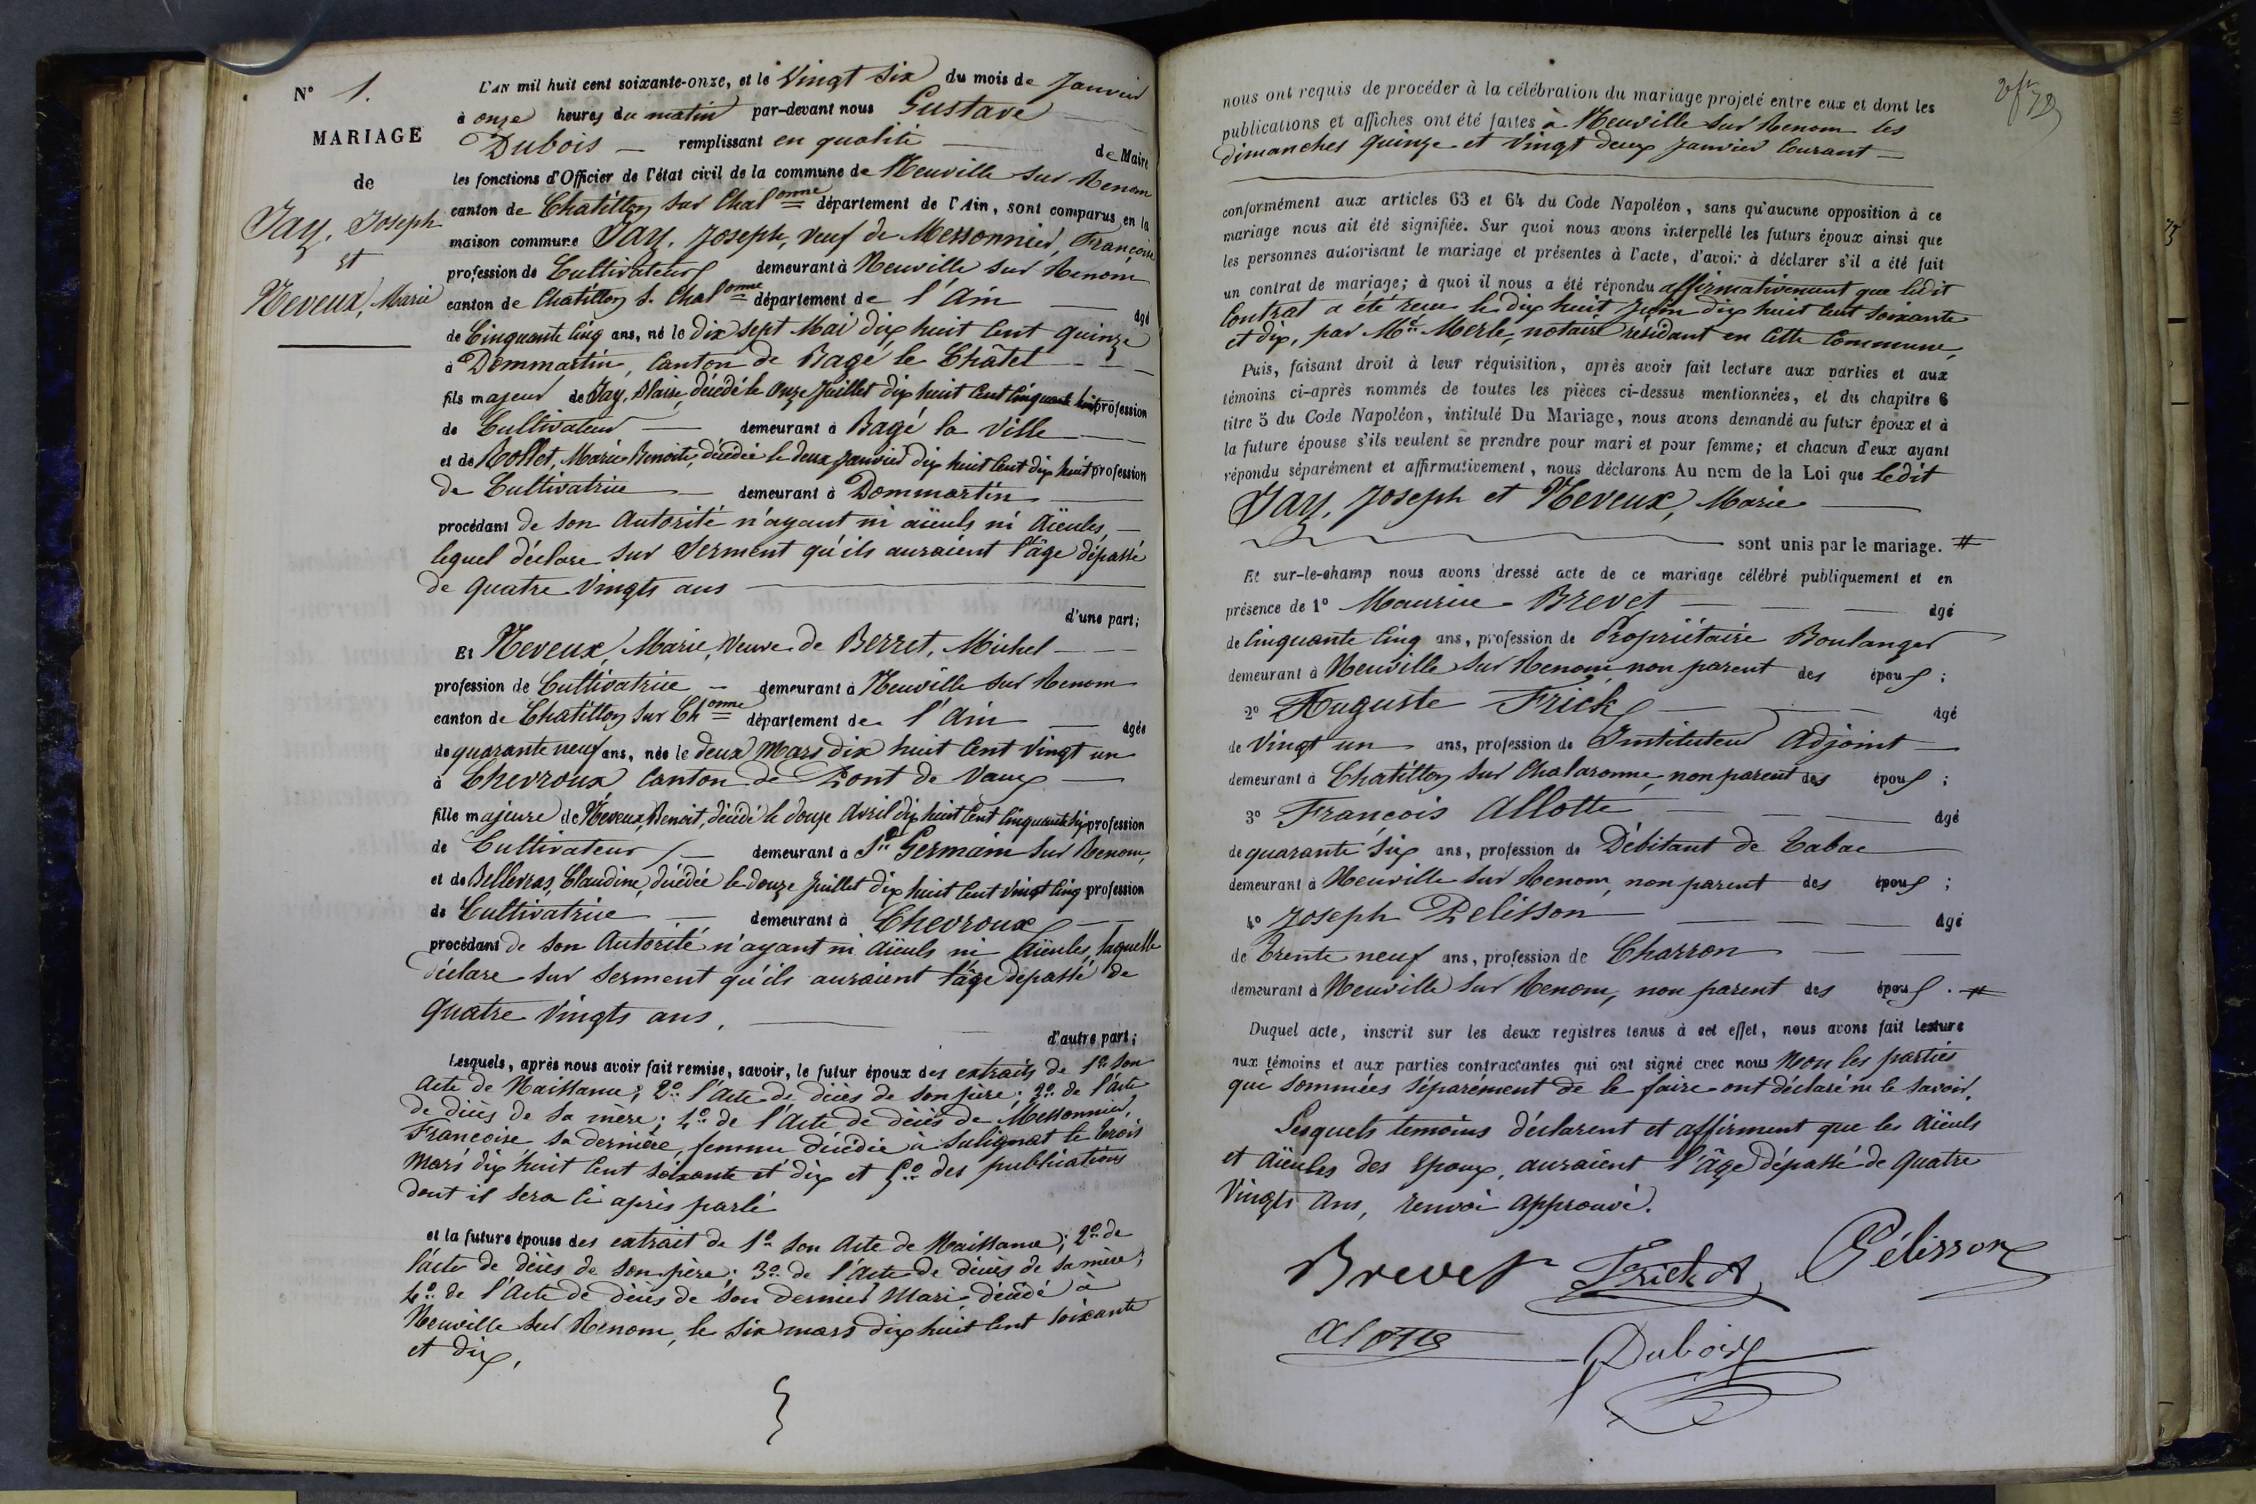 N° 1.
MARIAGE
de
Jay, Joseph
et
Neveux, Marie
L'AN mil huit cent soixante-onze, et le Vingt Six du mois de Janvier
à onze heures du matin par-devant nous Gustave
Dubois — remplissant en qualité — de Maire
les fonctions d'Officier de l'état civil de la commune de Neuville sur Renom
canton de Chatillon sur Chalonne département de l'Ain, sont comparus en la
maison commune Jay, Joseph, veuf de Messonnier, Françoise
profession de Cultivateur demeurant à Neuville sur Renom
canton de Chatillon s. Chalonne département de l'Ain — âgé
de Cinquante Cinq ans, né le dix sept Mai dix huit Cent quinze
à Dommartin, Canton de Bagé le Châtel — —
fils majeur de Jay, Blaise, décédé le Onze Juillet dix huit Cent Cinquante profession
de Cultivateur — demeurant à Bagé la Ville —
et de Rollet, Marie Benoite, décédée le deux Janvier dix huit Cent dix huit profession
de Cultivatrice — demeurant à Dommartin —
procédant de son Autorité n'ayant ni aïeuls ni Aïeules, —
lequel déclare sur Serment qu'ils auraient l'âge dépassé
de quatre Vingts ans —
d'une part;
Et Neveux, Marie, Veuve de Berret, Michel — —
profession de Cultivatrice — demeurant à Neuville sur Renom
canton de Chatillon sur Chonne département de l'Ain — âgée
de quarante neuf ans, née le deux Mars dix huit Cent Vingt un
à Chevroux Canton de Pont de Vaux —
fille majeure de Neveux, Benoit, décédé le douze Avril dix huit Cent Cinquante six profession
de Cultivateur — demeurant à St Germain sur Renom,
et de Bellevras, Claudine, décédée le douze Juillet dix huit Cent Vingt Cinq profession
de Cultivatrice — demeurant à Chevroux — —
procédant de son Autorité n'ayant ni Aïeuls ni Aïeules, laquelle
déclare sur Serment qu'ils auraient l'âge dépassé de
quatre Vingts ans, —
d'autre part;
Lesquels, après nous avoir fait remise, savoir, le futur époux des extraits de 1° Son
Acte de Naissance; 2° l'Acte de décès de son père; 3° de l'Acte
de décès de sa mère; 4° de l'Acte de décès de Messonnier,
Françoise sa dernière, femme décédée à Sulignat le trois
Mars dix huit Cent soixante et dix et 5° des publications
dont il sera ci après parlé
et la future épouse des extrait de 1° Son Acte de Naissance; 2° de
l'acte de décès de son père; 3° de l'Acte de décès de sa mère;
4° de l'Acte de décès de son dernier Mari décédé à
Neuville sur Renom, le six mars dix huit Cent soixante
et dix,
nous ont requis de procéder à la célébration du mariage projeté entre eux et dont les
publications et affiches ont été faites à Neuville sur Renom les
dimanches Quinze et Vingt deux Janvier Courant —
conformément aux articles 63 et 64 du Code Napoléon, sans qu'aucune opposition à ce
mariage nous ait été signifiée. Sur quoi nous avons interpellé les futurs époux ainsi que
les personnes autorisant le mariage et présentes à l'acte, d'avoir à déclarer s'il a été fait
un contrat de mariage; à quoi il nous a été répondu affirmativement que ledit
Contrat a été reçu le dix huit Juin dix huit Cent soixante
et dix, par Me Merle, notaire résidant en Cette Commune,
Puis, faisant droit à leur réquisition, après avoir fait lecture aux parties et aux
témoins ci-après nommés de toutes les pièces ci-dessus mentionnées, et du chapitre 6
titre 5 du Code Napoléon, intitulé Du Mariage, nous avons demandé au futur époux et à
la future épouse s'ils veulent se prendre pour mari et pour femme; et chacun d'eux ayant
répondu séparément et affirmativement, nous déclarons Au nom de la Loi que ledit
Jay, Joseph et Neveux, Marie —
— sont unis par le mariage. #
Et sur-le-champ nous avons dressé acte de ce mariage célébré publiquement et en
présence de 1° Maurice Brevet — — âgé
de Cinquante Cinq ans, profession de Propriétaire Boulanger
demeurant à Neuville sur Renom, non parent des époux;
2° Auguste Frick — — âgé
de Vingt un ans, profession de Instituteur Adjoint —
demeurant à Chatillon sur Chalaronne, non parent des époux;
3° François Allotte — — âgé
de quarante Six ans, profession de Débitant de Tabac —
demeurant à Neuville sur Renom, non parent des époux;
4° Joseph Pelisson — — âgé
de Trente neuf ans, profession de Charron — —
demeurant à Neuville sur Renom, non parent des époux. #
Duquel acte, inscrit sur les deux registres tenus à cet effet, nous avons fait lecture
aux témoins et aux parties contractantes qui ont signé avec nous Non les parties
que Sommées Séparément de le faire ont déclaré ne le savoir.
Lesquels temoins déclarent et affirment que les Aïeuls
et Aïeules des époux, auraient l'âge dépassé de Quatre
Vingts Ans, renvoi Approuvé.
Brevet Frick A Pélisson
alotte
Dubois